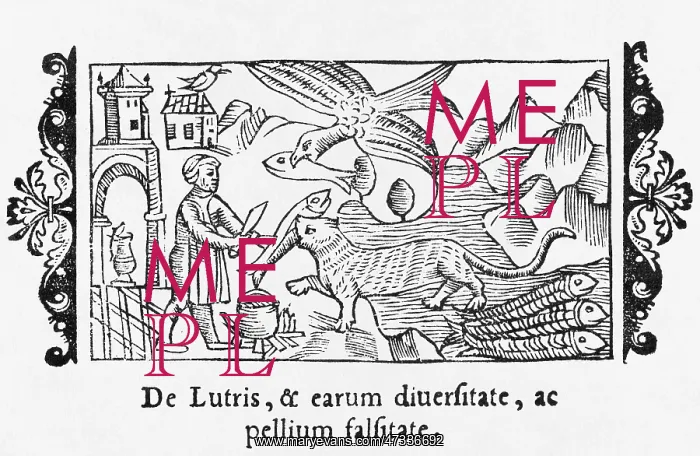 ME
PL
ME
PL
De Lutris, & earum diuerſitate, ac
pellium falſitate.
www.maryevans.com/47386692